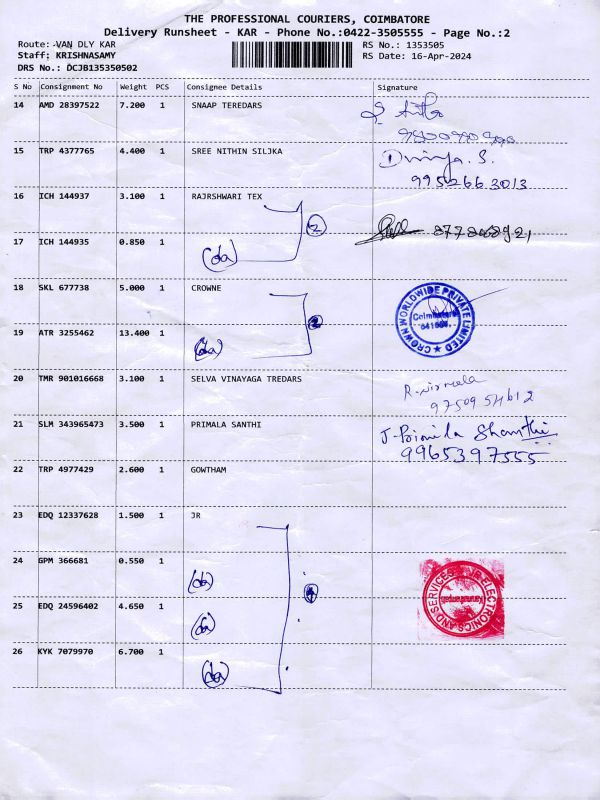 THE PROFESSIONAL COURIERS, COIMBATORE
Delivery Runsheet - KAR - Phone No.:0422-3505555 - Page No.:2
Route: VAN DLY KAR
RS No.: 1353505
Staff: KRISHNASAMY
RS Date: 16-Apr-2024
DRS No.: DCJB135350502
S No Consignment No Weight PCS Consignee Details Signature
14 AMD 28397522 7.200 1 SNAAP TEREDARS
15 TRP 4377765 4.400 1 SREE NITHIN SILJKA
Divya. S.
995266 3013
16 ICH 144937 3.100 1 RAJRSHWARI TEX
2
17 ICH 144935 0.850 1
(do)
18 SKL 677738 5.000 1 CROWNE
CROWN WORLDWIDE PRIVATE LIMITED
Coimbatore
19 ATR 3255462 13.400 1
(do)
20 TMR 901016668 3.100 1 SELVA VINAYAGA TREDARS
R. nirmala
21 SLM 343965473 3.500 1 PRIMALA SANTHI
J. Primila Shanthi
9965397555
22 TRP 4977429 2.600 1 GOWTHAM
23 EDQ 12337628 1.500 1 JR
24 GPM 366681 0.550 1
(do)
4
JR ELECTRONICS AND SERVICES
25 EDQ 24596402 4.650 1
(do)
26 KYK 7079970 6.700 1
(do)